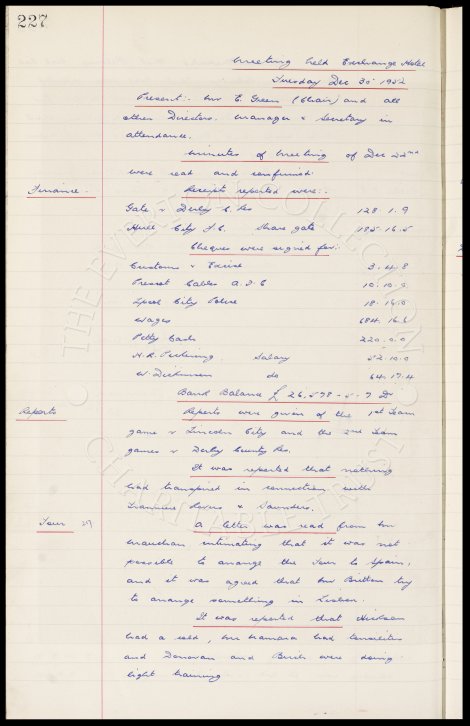 227
Meeting held Exchange Hotel
Tuesday Dec 30 1952
Present:- Mr E. Green (Chair) and all
other Directors. Manager & Secretary in
attendance.
Minutes of Meeting of Dec 22nd
were read and confirmed.
Finance. Receipts reported were:-
Gate v Derby C. Res 128. 1. 9
Hull City F.C. Share gate 185. 16. 5
Cheques were signed for:-
Customs & Excise 3. 4. 8
Prescot Cables A.F.C 10. 10. 0
Lpool City Police 18. 16. 0
Wages 684. 16. 6
Petty Cash 220. 0. 0
H.R. Pickering. Salary 52. 10. 0
W. Dickinson do 64. 17. 4
Bank Balance £ 26,578 - 5 - 7 Dr
Reports Reports were given of the 1st Team
game v Lincoln City and the 2nd Team
games v Derby County Res.
It was reported that nothing
had transpired in connection with
Tranmere Rovers & Saunders.
Tour A letter was read from Mr
intimating that it was not
possible to arrange the Tour to Spain,
and it was agreed that Mr Britton try
to arrange something in Lisbon.
It was reported that Hickson
had a cold, McNamara had tonsilitis
and Donovan and Birch were doing
light training.
THE EVERTON COLLECTION
CHARITABLE TRUST